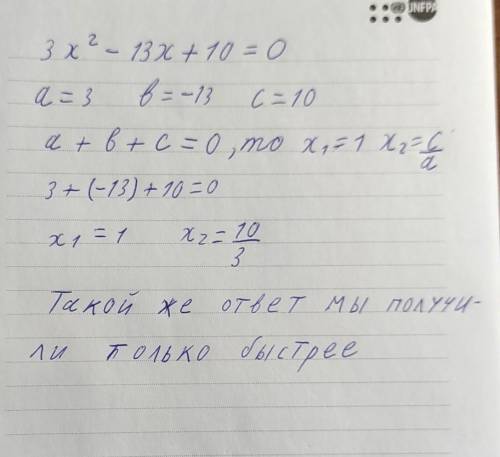 UNFPA
3x² - 13x + 10 = 0
a = 3 b = -13 c = 10
a + b + c = 0, то x₁ = 1 x₂ = c/a
3 + (-13) + 10 = 0
x₁ = 1 x₂ = 10/3
Такой же ответ мы получи-
ли только быстрее